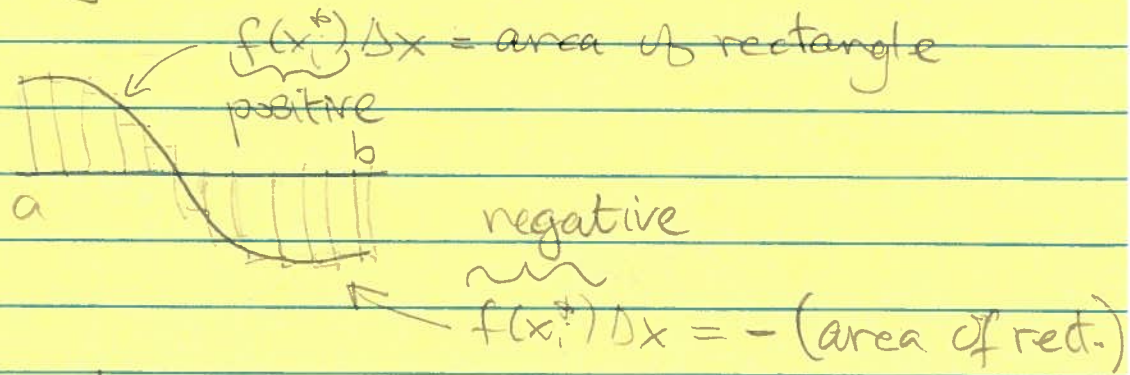 f(xᵢ*) Δx = area of rectangle
positive
b
a
negative
f(xᵢ*) Δx = - (area of rect.)